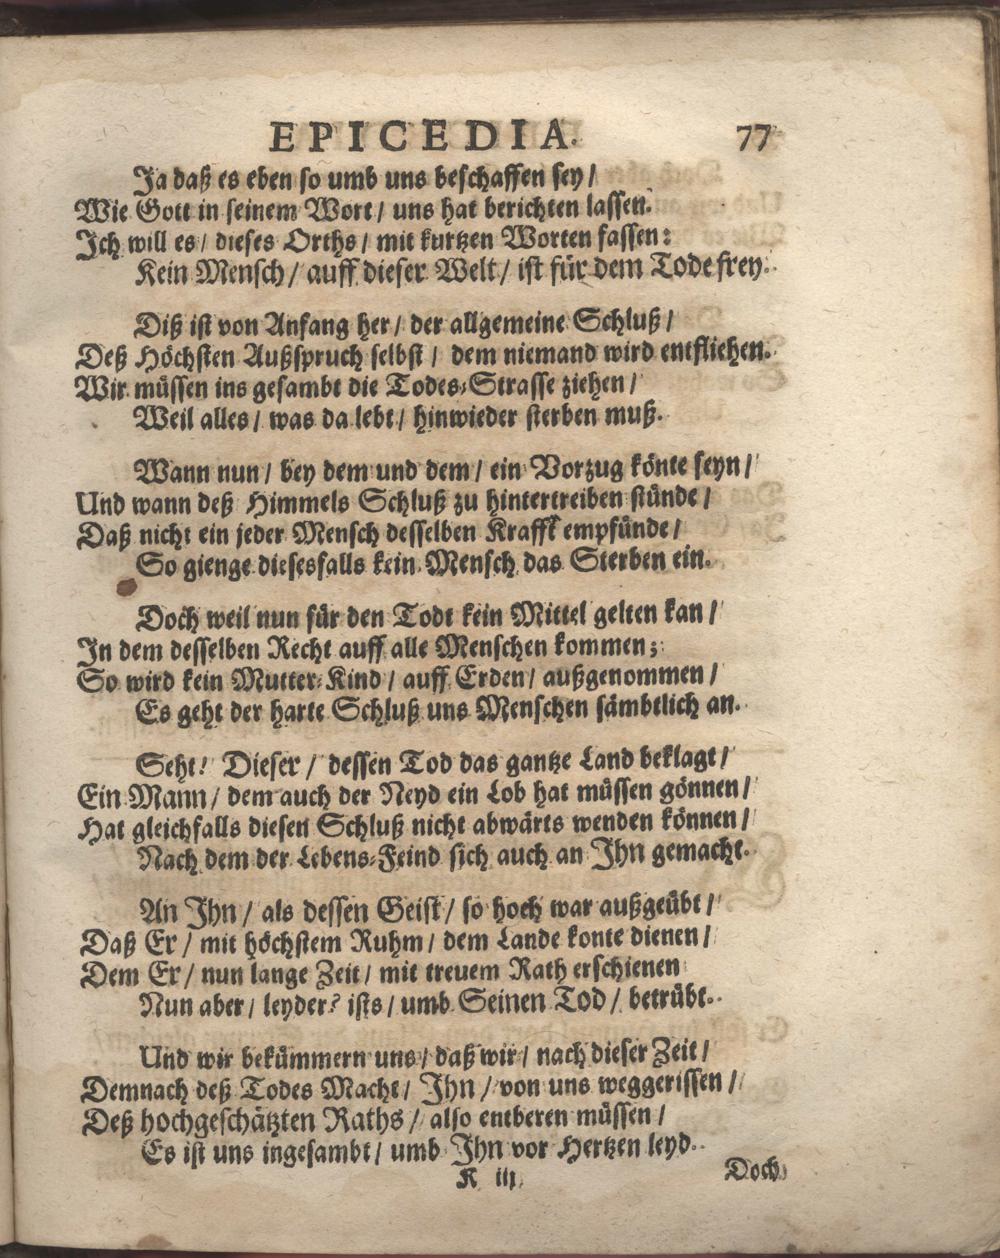 EPICEDIA. 77
Ja daß es eben so umb uns beschaffen sey /
Wie Gott in seinem Wort / uns hat berichten lassen.
Ich will es / dieses Orths / mit kurtzen Worten fassen:
Kein Mensch / auff dieser Welt / ist für dem Tode frey.
Diß ist von Anfang her / der allgemeine Schluß /
Deß Höchsten Außspruch selbst / dem niemand wird entfliehen.
Wir müssen ins gesambt die Todes-Strasse ziehen /
Weil alles / was da lebt / hinwieder sterben muß.
Wann nun / bey dem und dem / ein Vorzug könte seyn /
Und wann deß Himmels Schluß zu hintertreiben stünde /
Daß nicht ein jeder Mensch desselben Krafft empfünde /
So gienge diesesfalls kein Mensch das Sterben ein.
Doch weil nun für den Todt kein Mittel gelten kan /
In dem desselben Recht auff alle Menschen kommen;
So wird kein Mutter-Kind / auff Erden / außgenommen /
Es geht der harte Schluß uns Menschen sämbtlich an.
Seht! Dieser / dessen Tod das gantze Land beklagt /
Ein Mann / dem auch der Neyd ein Lob hat müssen gönnen /
Hat gleichfalls diesen Schluß nicht abwärts wenden können /
Nach dem der Lebens-Feind sich auch an Ihn gemacht.
An Ihn / als dessen Geist / so hoch war außgeübt /
Daß Er / mit höchstem Ruhm / dem Lande konte dienen /
Dem Er / nun lange Zeit / mit treuem Rath erschienen
Nun aber / leyder? ists / umb Seinen Tod / betrübt.
Und wir bekümmern uns / daß wir / nach dieser Zeit /
Demnach deß Todes Macht / Ihn / von uns weggerissen /
Deß hochgeschätzten Raths / also entberen müssen /
Es ist uns ingesambt / umb Ihn vor Hertzen leyd.
K iij Doch